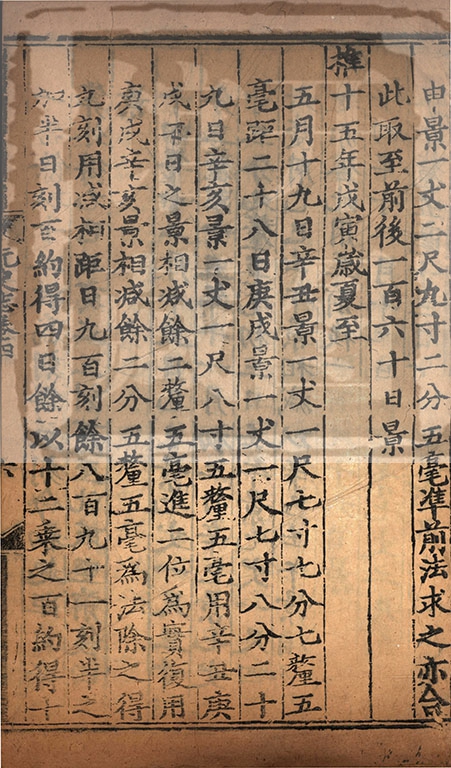 由景一丈二尺九寸二分五毫準前法求之亦合
此取至前後一百六十日景
推十五年戊寅歲夏至
五月十九日辛丑景一丈一尺七寸七分七釐五
毫距二十八日庚戌景一丈一尺七寸八分二十
九日辛亥景一丈一尺八寸五釐五毫用辛丑庚
戌二日之景相减餘二釐五毫進二位為實復用
庚戌辛亥景相减餘二分五釐五毫為法除之得
九刻用减相距日九百刻餘八百九十一刻半之
加半日刻百約得四日餘以十二乗之百約得十
元史志卷四
六